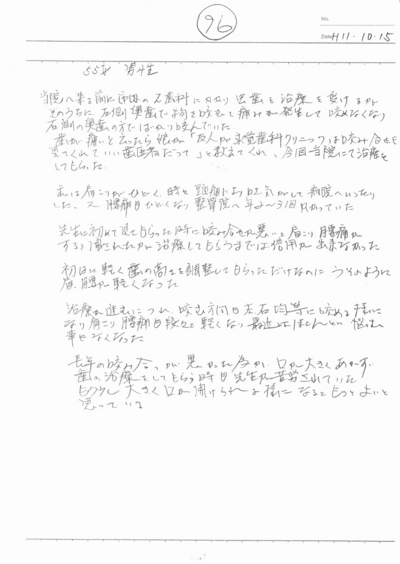 96
No.
Date H11・10・15
55才 男性
当院へ来る前に市内の 歯科にかかり 虫歯を治療を受けるが
そのうちに、左側奥歯でよう咬むと痛みが発生して咬めなくなり
右側の奥歯の方でばかり咬んでいた。
歯が痛いと云ったら娘が「友人が 歯科クリニックは咬み合せも
見てくれていい歯医者だって」と教えてくれ、今回当院にて治療を
してもらった。
私は肩こりがひどく、時々頭痛
した。又 腰痛もひどくなり整骨院へ年2〜3回かかっていた
先生に初めて見てもらった時に咬み合せが悪いと肩こり腰痛が
すると も治療してもらうまでは信用が出来なかった
初日に軽く歯の高さを調整してもらっただけなのに うそのように
肩、腰が軽くなった
治療が進むにつれ、咬む方向も左右均等に咬める様に
なり肩こり腰痛も段々と軽くなり 最近はほとんどい
なくなった
長年の咬み合せが悪かった為か 口が大きくあかず
歯の治療をしてもらう時も先生が苦労されていた
もう少し大きく口が開けられる様になるともっとよいと
思っている